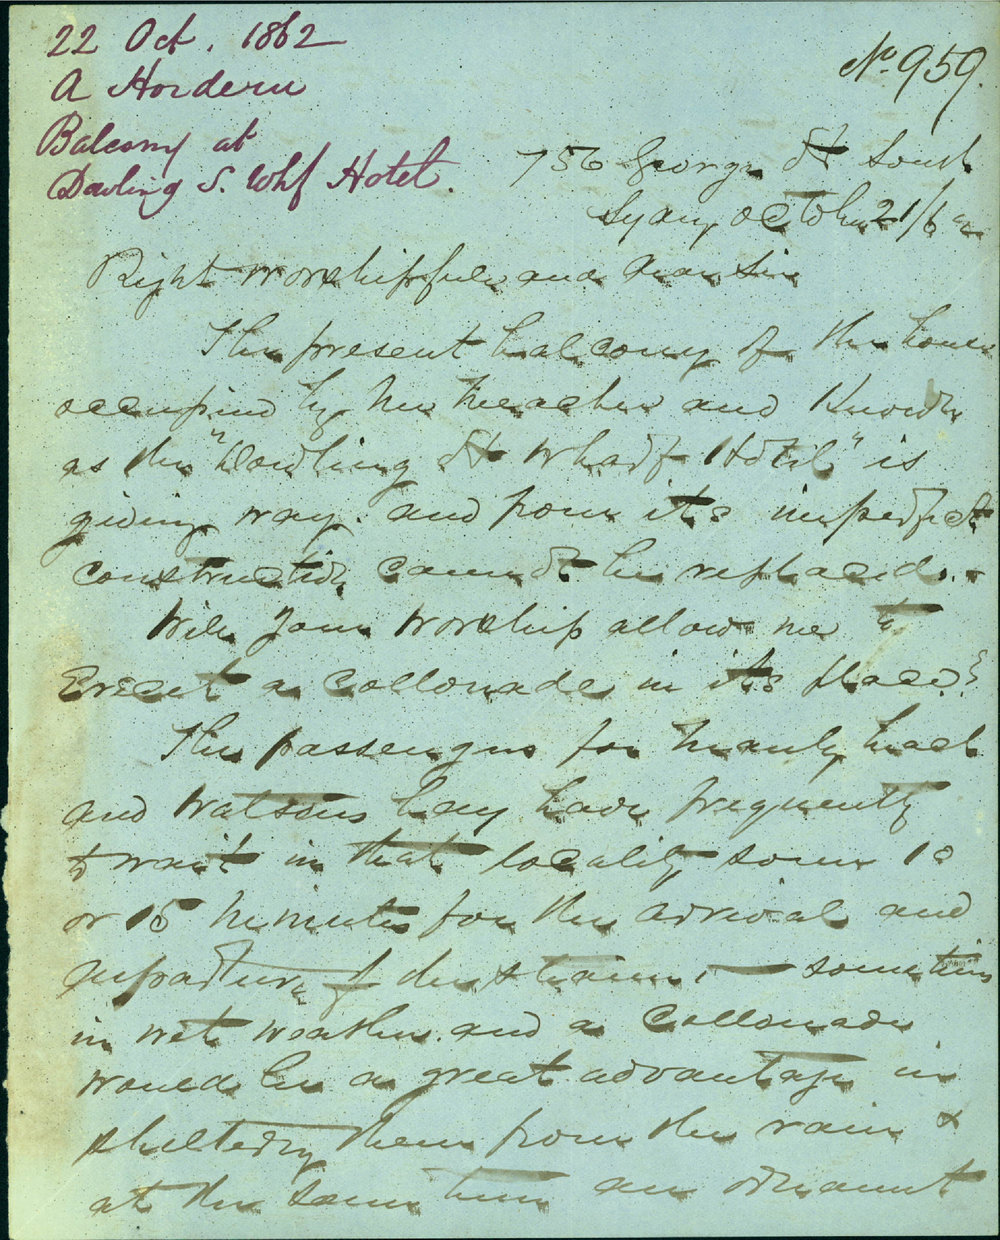 22 Oct. 1862
A Hordern
Balcony at
Dowling S. Whf Hotel.
No. 959.
756 George St South
Sydney October 21/62
Right Worshipfull and Dear Sir
The present balcony of the house
occupied by Mr and Known
as the "Dowling St Wharf Hotel" is
giving way. and from its imperfect
construction cannot be replaced. -
Will Your Worship allow me to
Erect a Collonade in its place?
The passengers for Manly beach
and Watsons bay have frequently
to wait in that locality some 10
or 15 minutes for the arrival and
departure of the steamer, — sometimes
in wet weather. and a Collonade
would be a great advantage in
sheltering them from the rain &
at the same time an ornament